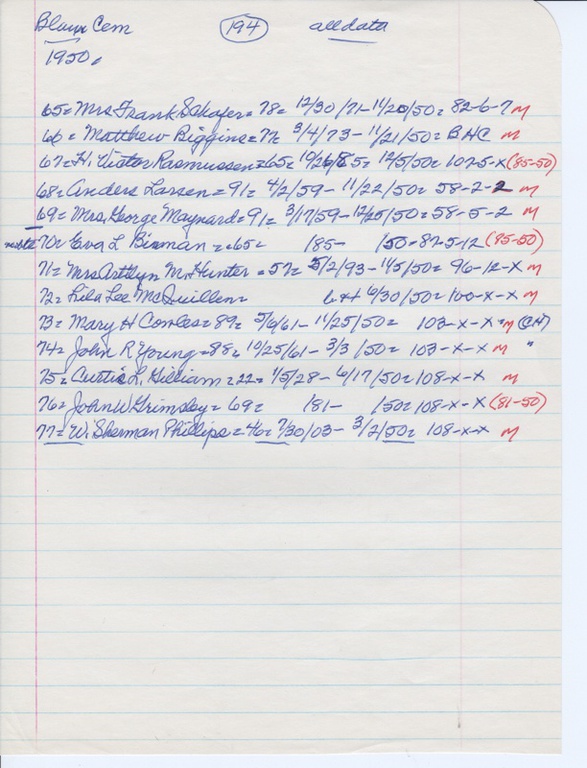 Blair Cem 194 all data
1950.
65= Mrs Frank Schafer= 78= 12/30/71- 11/20/50= 82-6-7 M
66= Matthew Biggins= 77= 3/4/73- 11/21/50= BHC M
67= H. Victor Rasmussen= 65= 10/26/85= 12/5/50= 102-5-x (85-50)
68= Anders Larsen= 91= 4/2/59- 11/22/50= 58-2-2 M
69= Mrs. George Maynard= 91= 3/17/59- 12/25/50= 58-5-2 M
70= Eva L Bixman= 65= /85- /50= 82-5-12 (85-50)
71= Mrs M. Hunter= 57= 5/2/93- 1/5/50= 96-12-x M
72= Lila Lee McQuillen= 6/30/50= 100-x-x M
73= Mary H Cowles= 89= 5/6/61- 11/25/50= 103-x-x M (CH)
74= John R Young= 88= 10/25/61- 3/3/50= 103-x-x M "
75= Curtis L. Gilliam= 22= 1/5/28- 6/17/50= 108-x-x M
76= John W Grimsley= 69= /81- /50= 108-x-x (81-50)
77= W. Sherman Phillips= 46= 7/30/03- 3/2/50= 108-x-x M